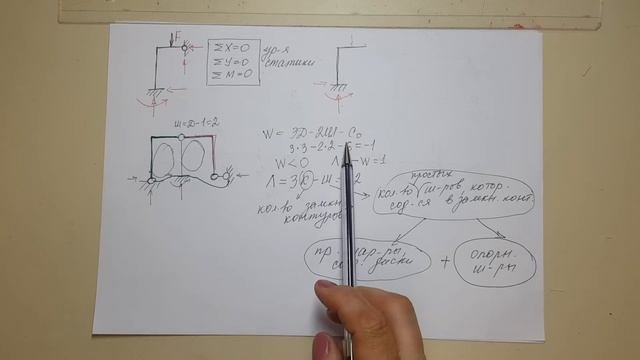 F
ΣX=0
ΣY=0
ΣM=0
ур-я
статики
Ш=Д-1=2
W= 3Д-2Ш-С₀
3·3-2·2-6=-1
W<0 Л -W=1
Л=3К-Ш= 2
кол-во замкн
контуров
простых
кол-во ш-ров, котор.
сод-ся в замкн. конт.
пр. диски
+
опорн.
ш-ры